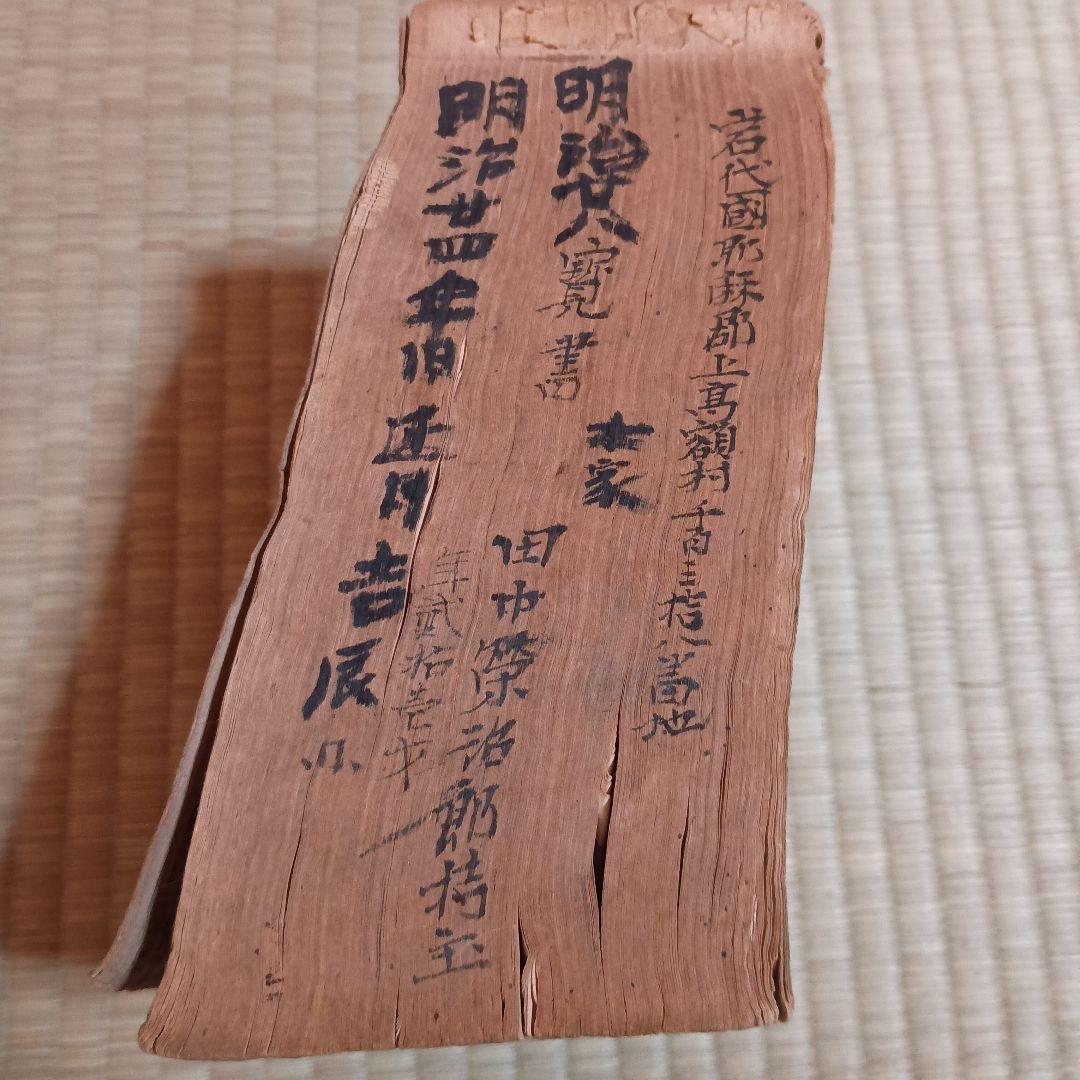 岩代國耶麻郡上高額村千百三拾八番地
明治廿八
寳見書
本家
田中榮治郎持主
年貳拾壱才
明治廿四年旧正月吉辰